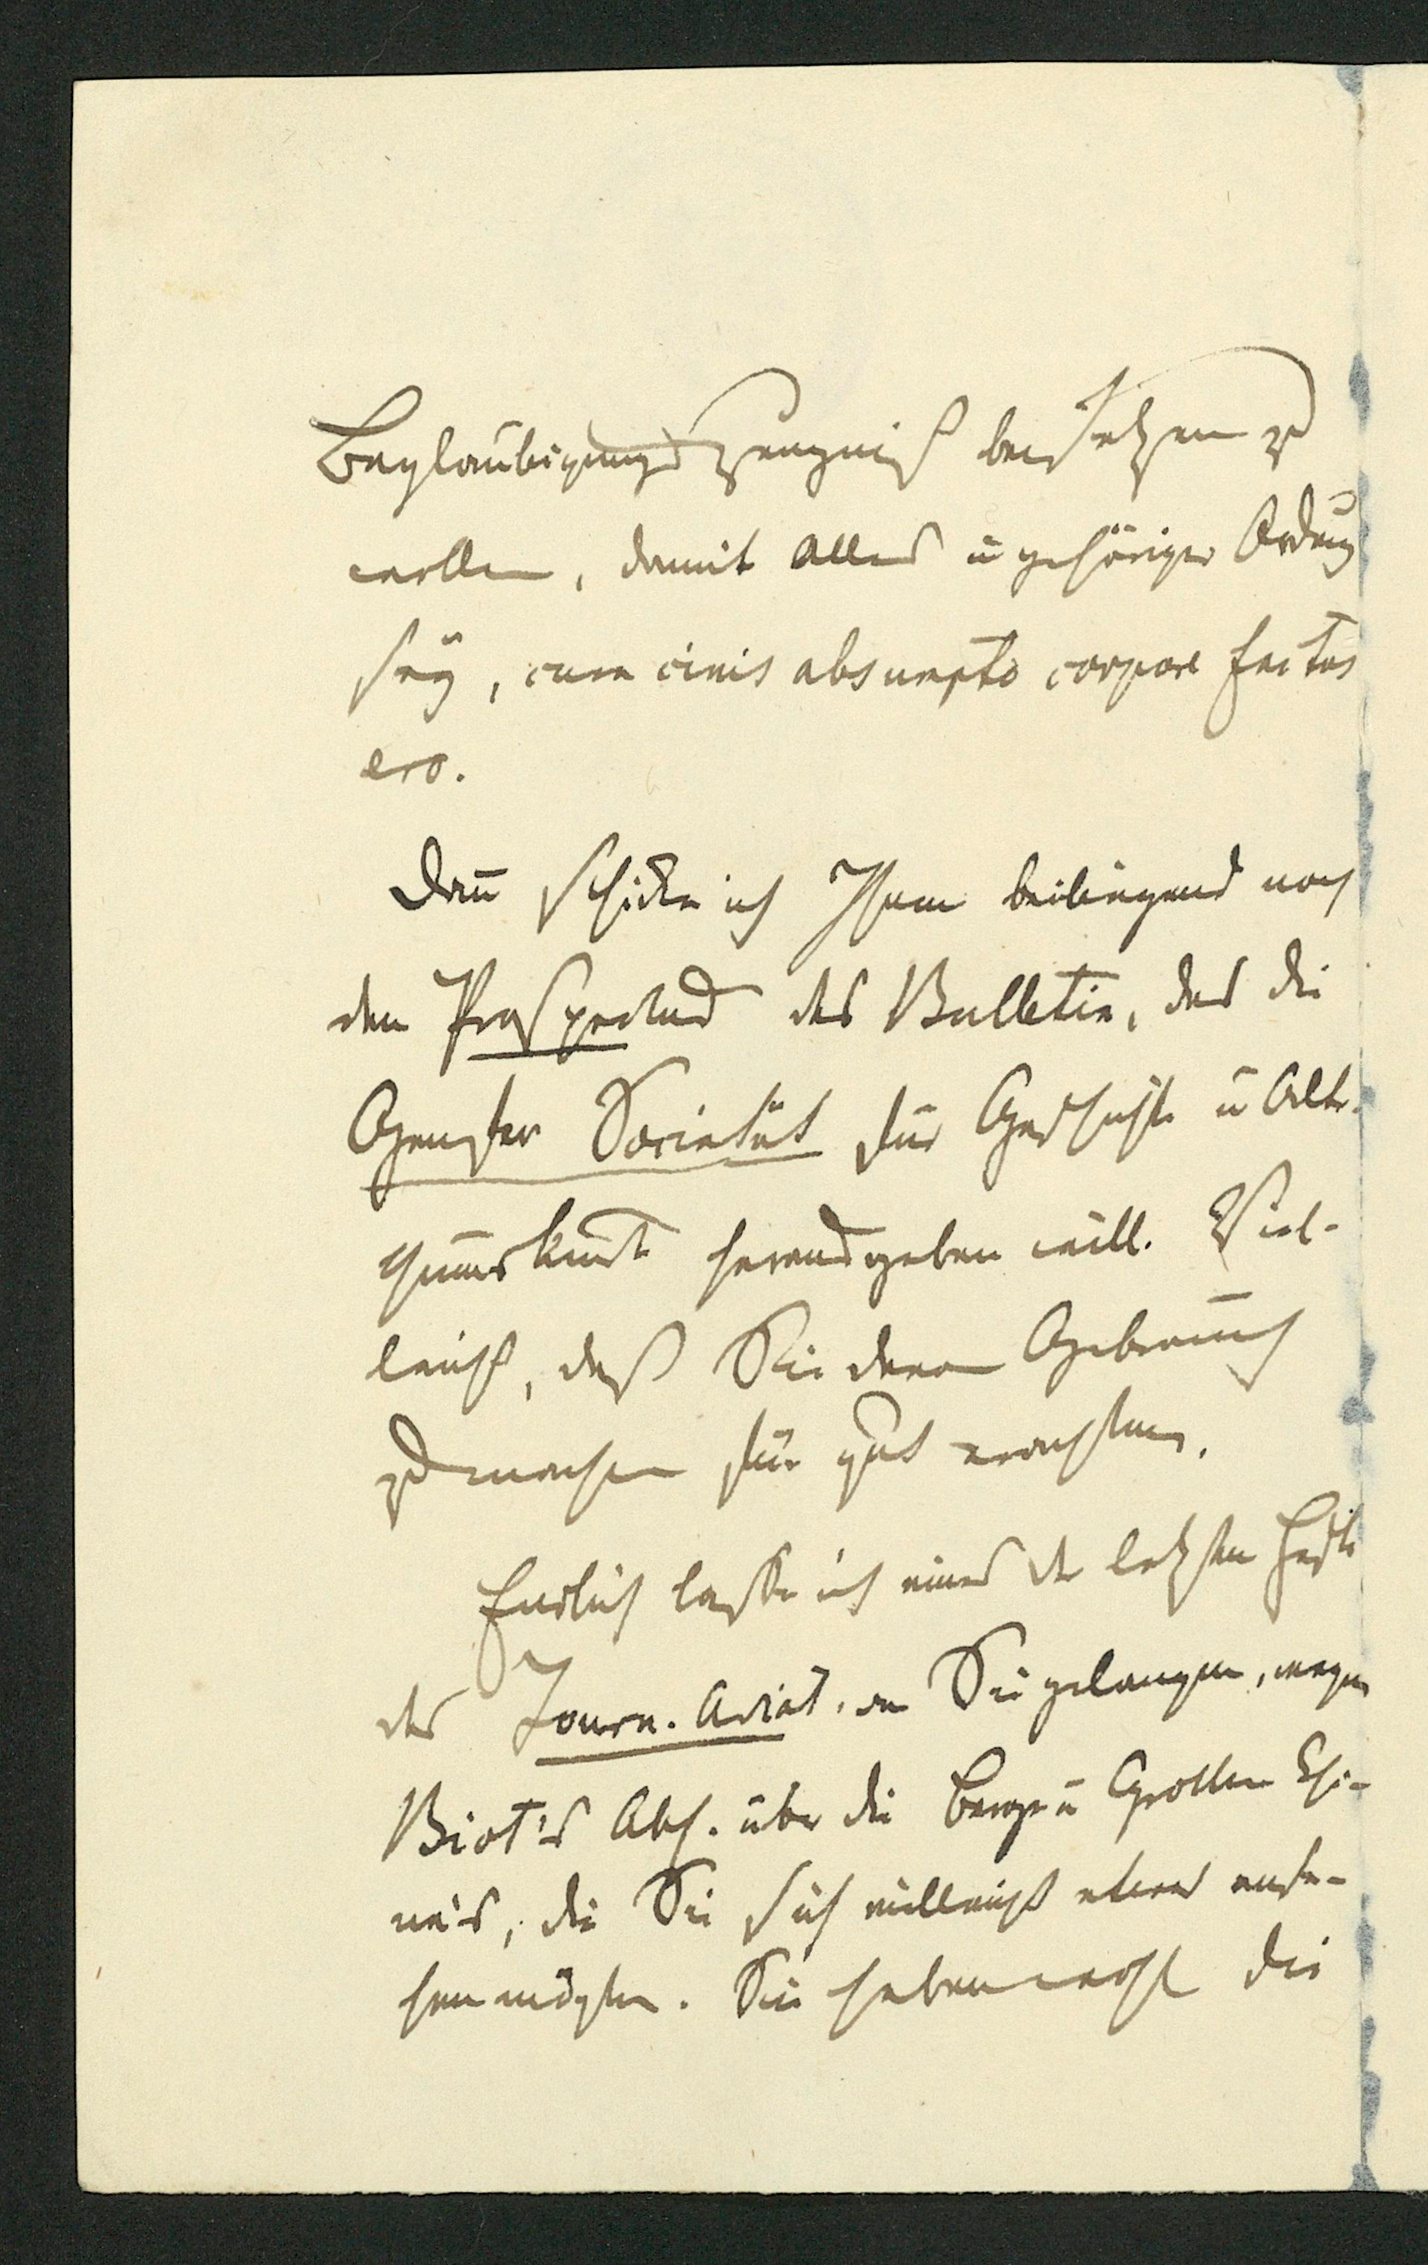 Beglaubigungszeugniß beisetzen zu
wollen, damit Alles in gehöriger Ordnung
sey, cum cinis absumpto corpore factus
ero.
Dann schicke ich Ihnen beiliegend noch
den Prospectus des Bulletin, das die
Genfer Societät für Geschichte u Alter-
thumskunde herausgeben will. Viel-
leicht, daß Sie davon Gebrauch
zu machen für gut erachten.
Endlich lasse ich eines der letzten Hefte
des Journ. Asiat. an Sie gelangen, wegen
Biot's Abh. über die Berge u Grotten Chi-
na's, die Sie sich vielleicht etwas anse-
hen mögten. Sie haben wohl die